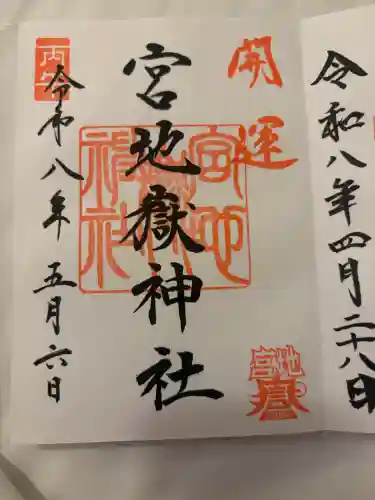 令和八年四月二十八日
開運
宮地嶽神社
宮地嶽神社
宮地
丙午
令和八年五月六日